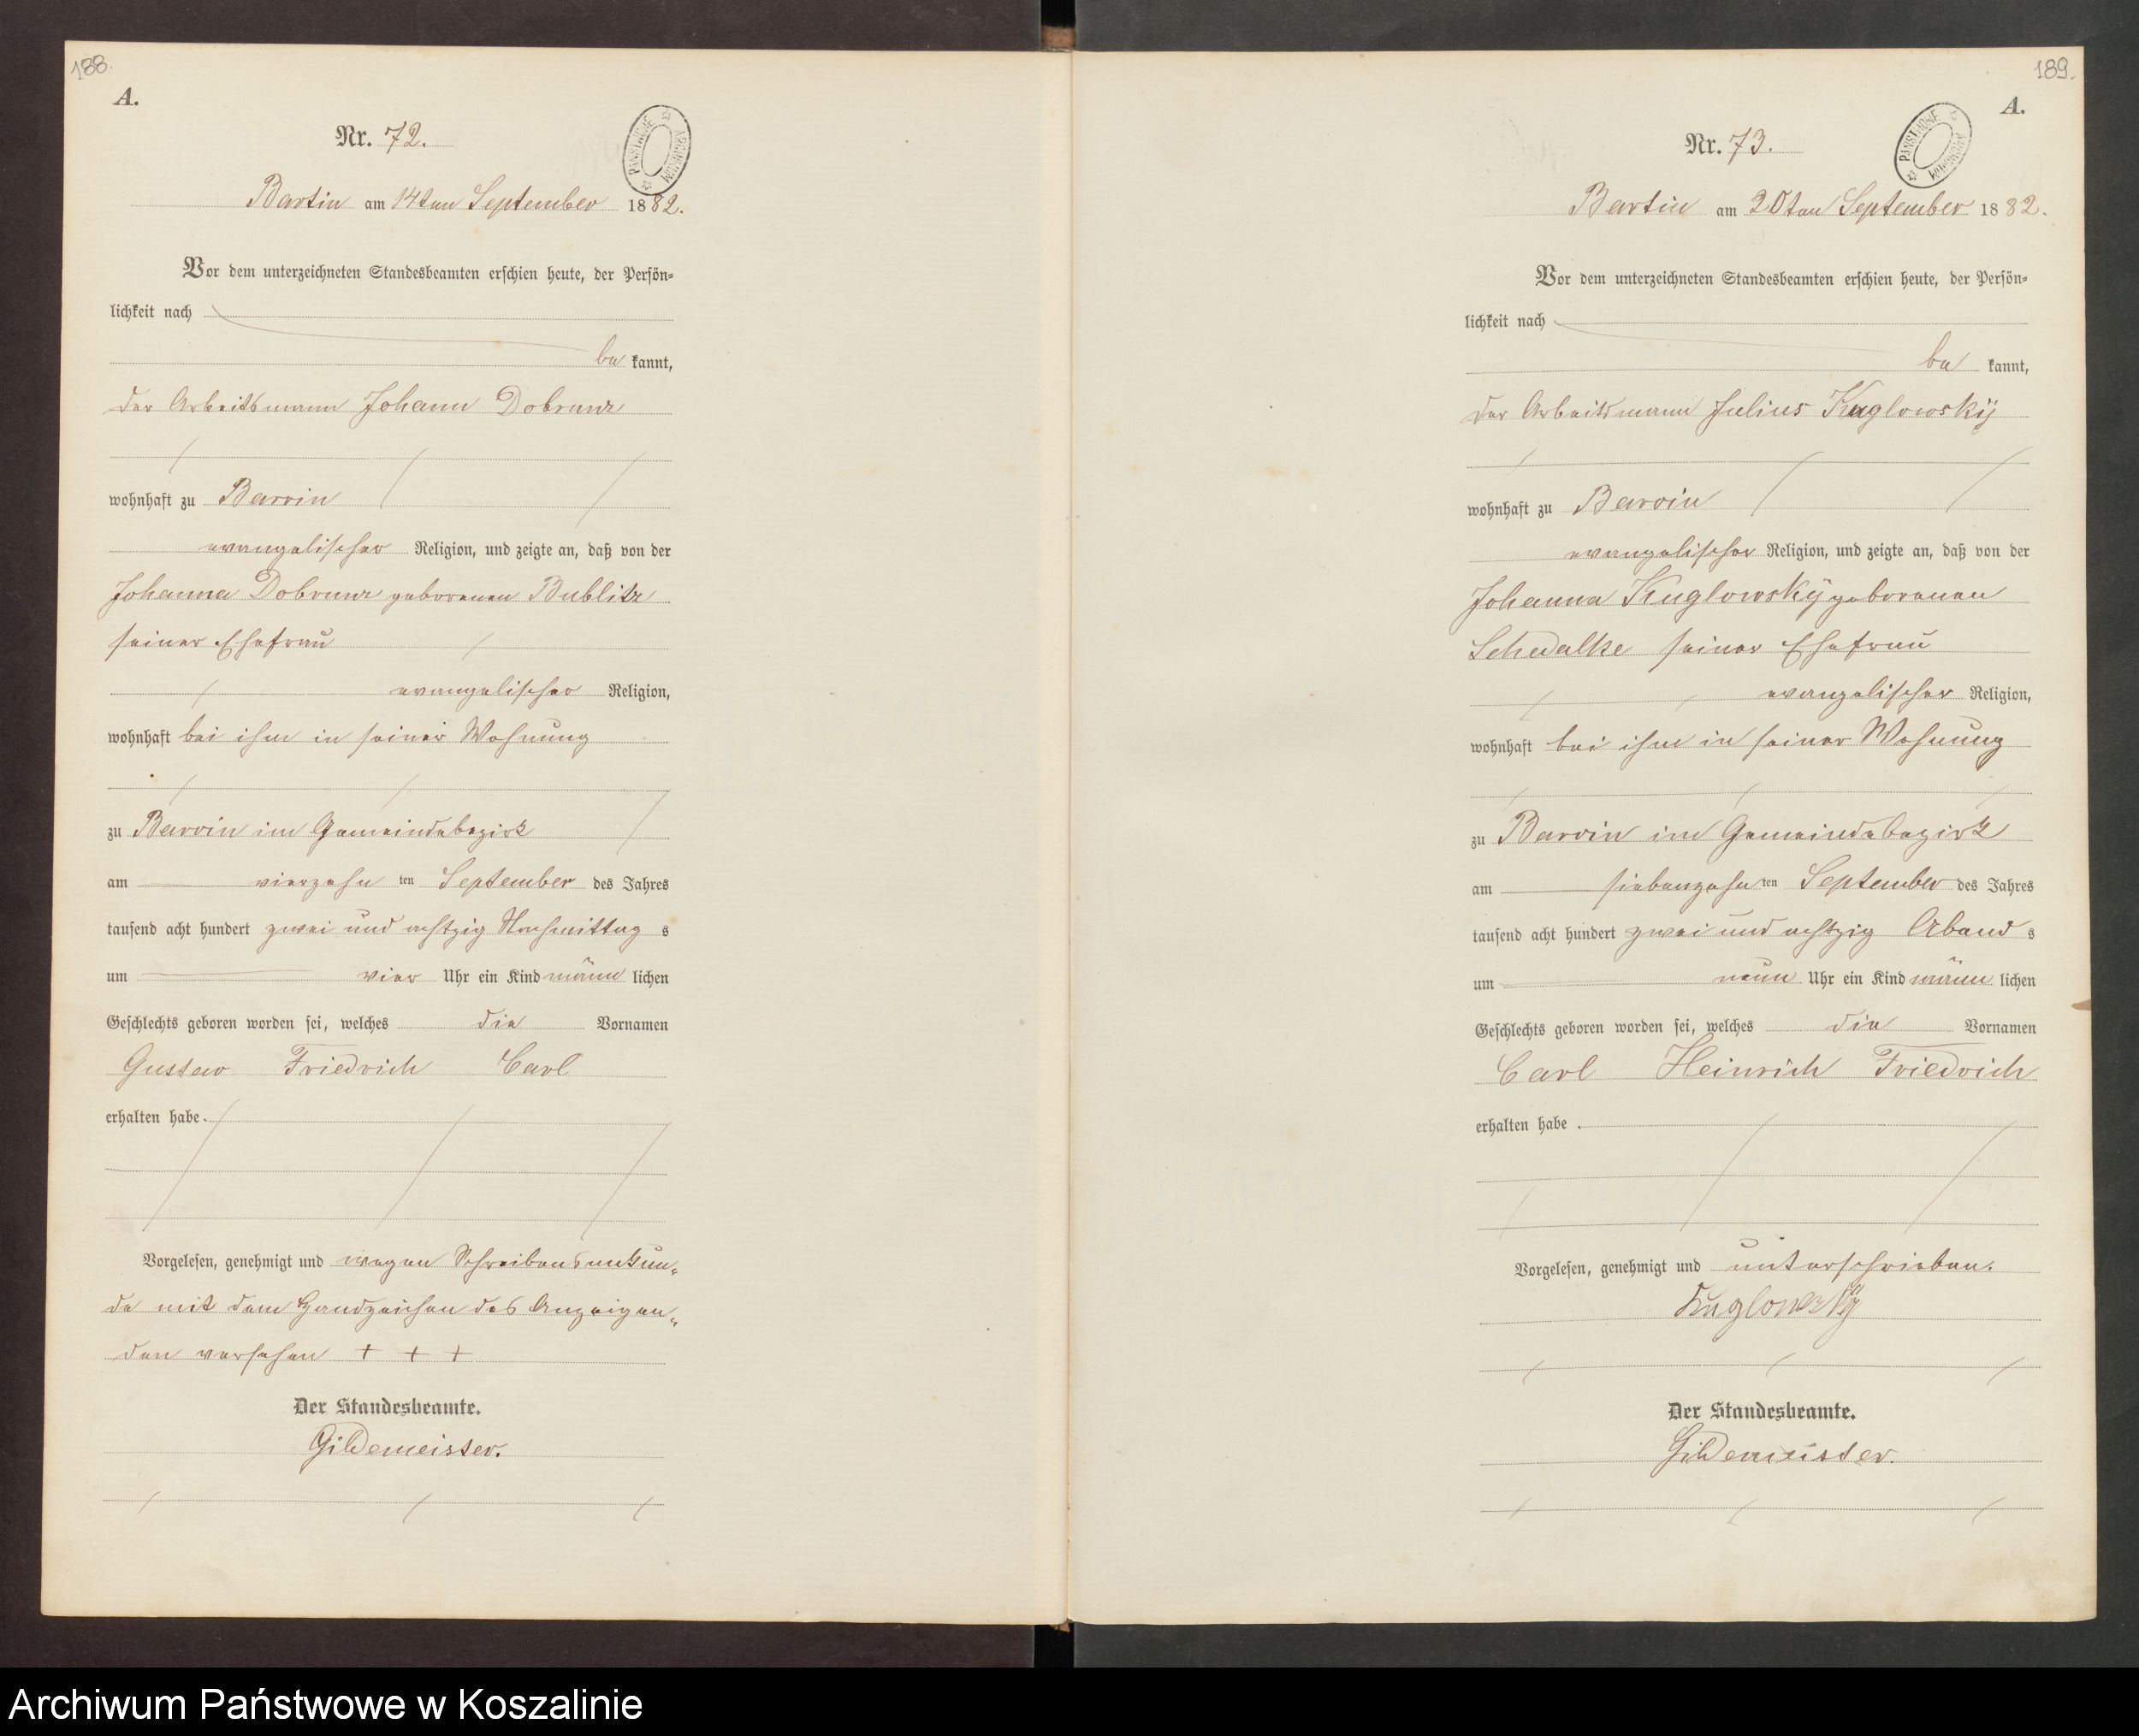 188.
A.
Nr. 72.
PAŃSTWOWE ARCHIWUM
Bartin am 14ten September 1882.
Vor dem unterzeichneten Standesbeamten erschien heute, der Persön-
lichkeit nach
be kannt,
der Arbeitsmann Johann Dobrunz
wohnhaft zu Barvin
evangelischer Religion, und zeigte an, daß von der
Johanna Dobrunz geborenen Bublitz
seiner Ehefrau
evangelischer Religion,
wohnhaft bei ihm in seiner Wohnung
zu Barvin im Gemeindebezirk
am vierzehn ten September des Jahres
tausend acht hundert zwei und achtzig Nachmittag s
um vier Uhr ein Kind männ lichen
Geschlechts geboren worden sei, welches die Vornamen
Gustav Friedrich Carl
erhalten habe.
Vorgelesen, genehmigt und wegen Schreibensunkun-
de mit dem Handzeichen des Anzeigen-
den versehen + + +
Der Standesbeamte.
Gildemeister.
189.
A.
Nr. 73.
PAŃSTWOWE ARCHIWUM
Bartin am 20ten September 1882.
Vor dem unterzeichneten Standesbeamten erschien heute, der Persön-
lichkeit nach
be kannt,
der Arbeitsmann Julius Kuglowský
wohnhaft zu Barvin
evangelischer Religion, und zeigte an, daß von der
Johanna Kuglowskÿ geborenen
Schedalke seiner Ehefrau
evangelischer Religion,
wohnhaft bei ihm in seiner Wohnung
zu Barvin im Gemeindebezirk
am siebenzehn ten September des Jahres
tausend acht hundert zwei und achtzig Abend s
um neun Uhr ein Kind männ lichen
Geschlechts geboren worden sei, welches die Vornamen
Carl Heinrich Friedrich
erhalten habe.
Vorgelesen, genehmigt und unterschrieben.
Kuglowsky
Der Standesbeamte.
Gildemeister.
Archiwum Państwowe w Koszalinie